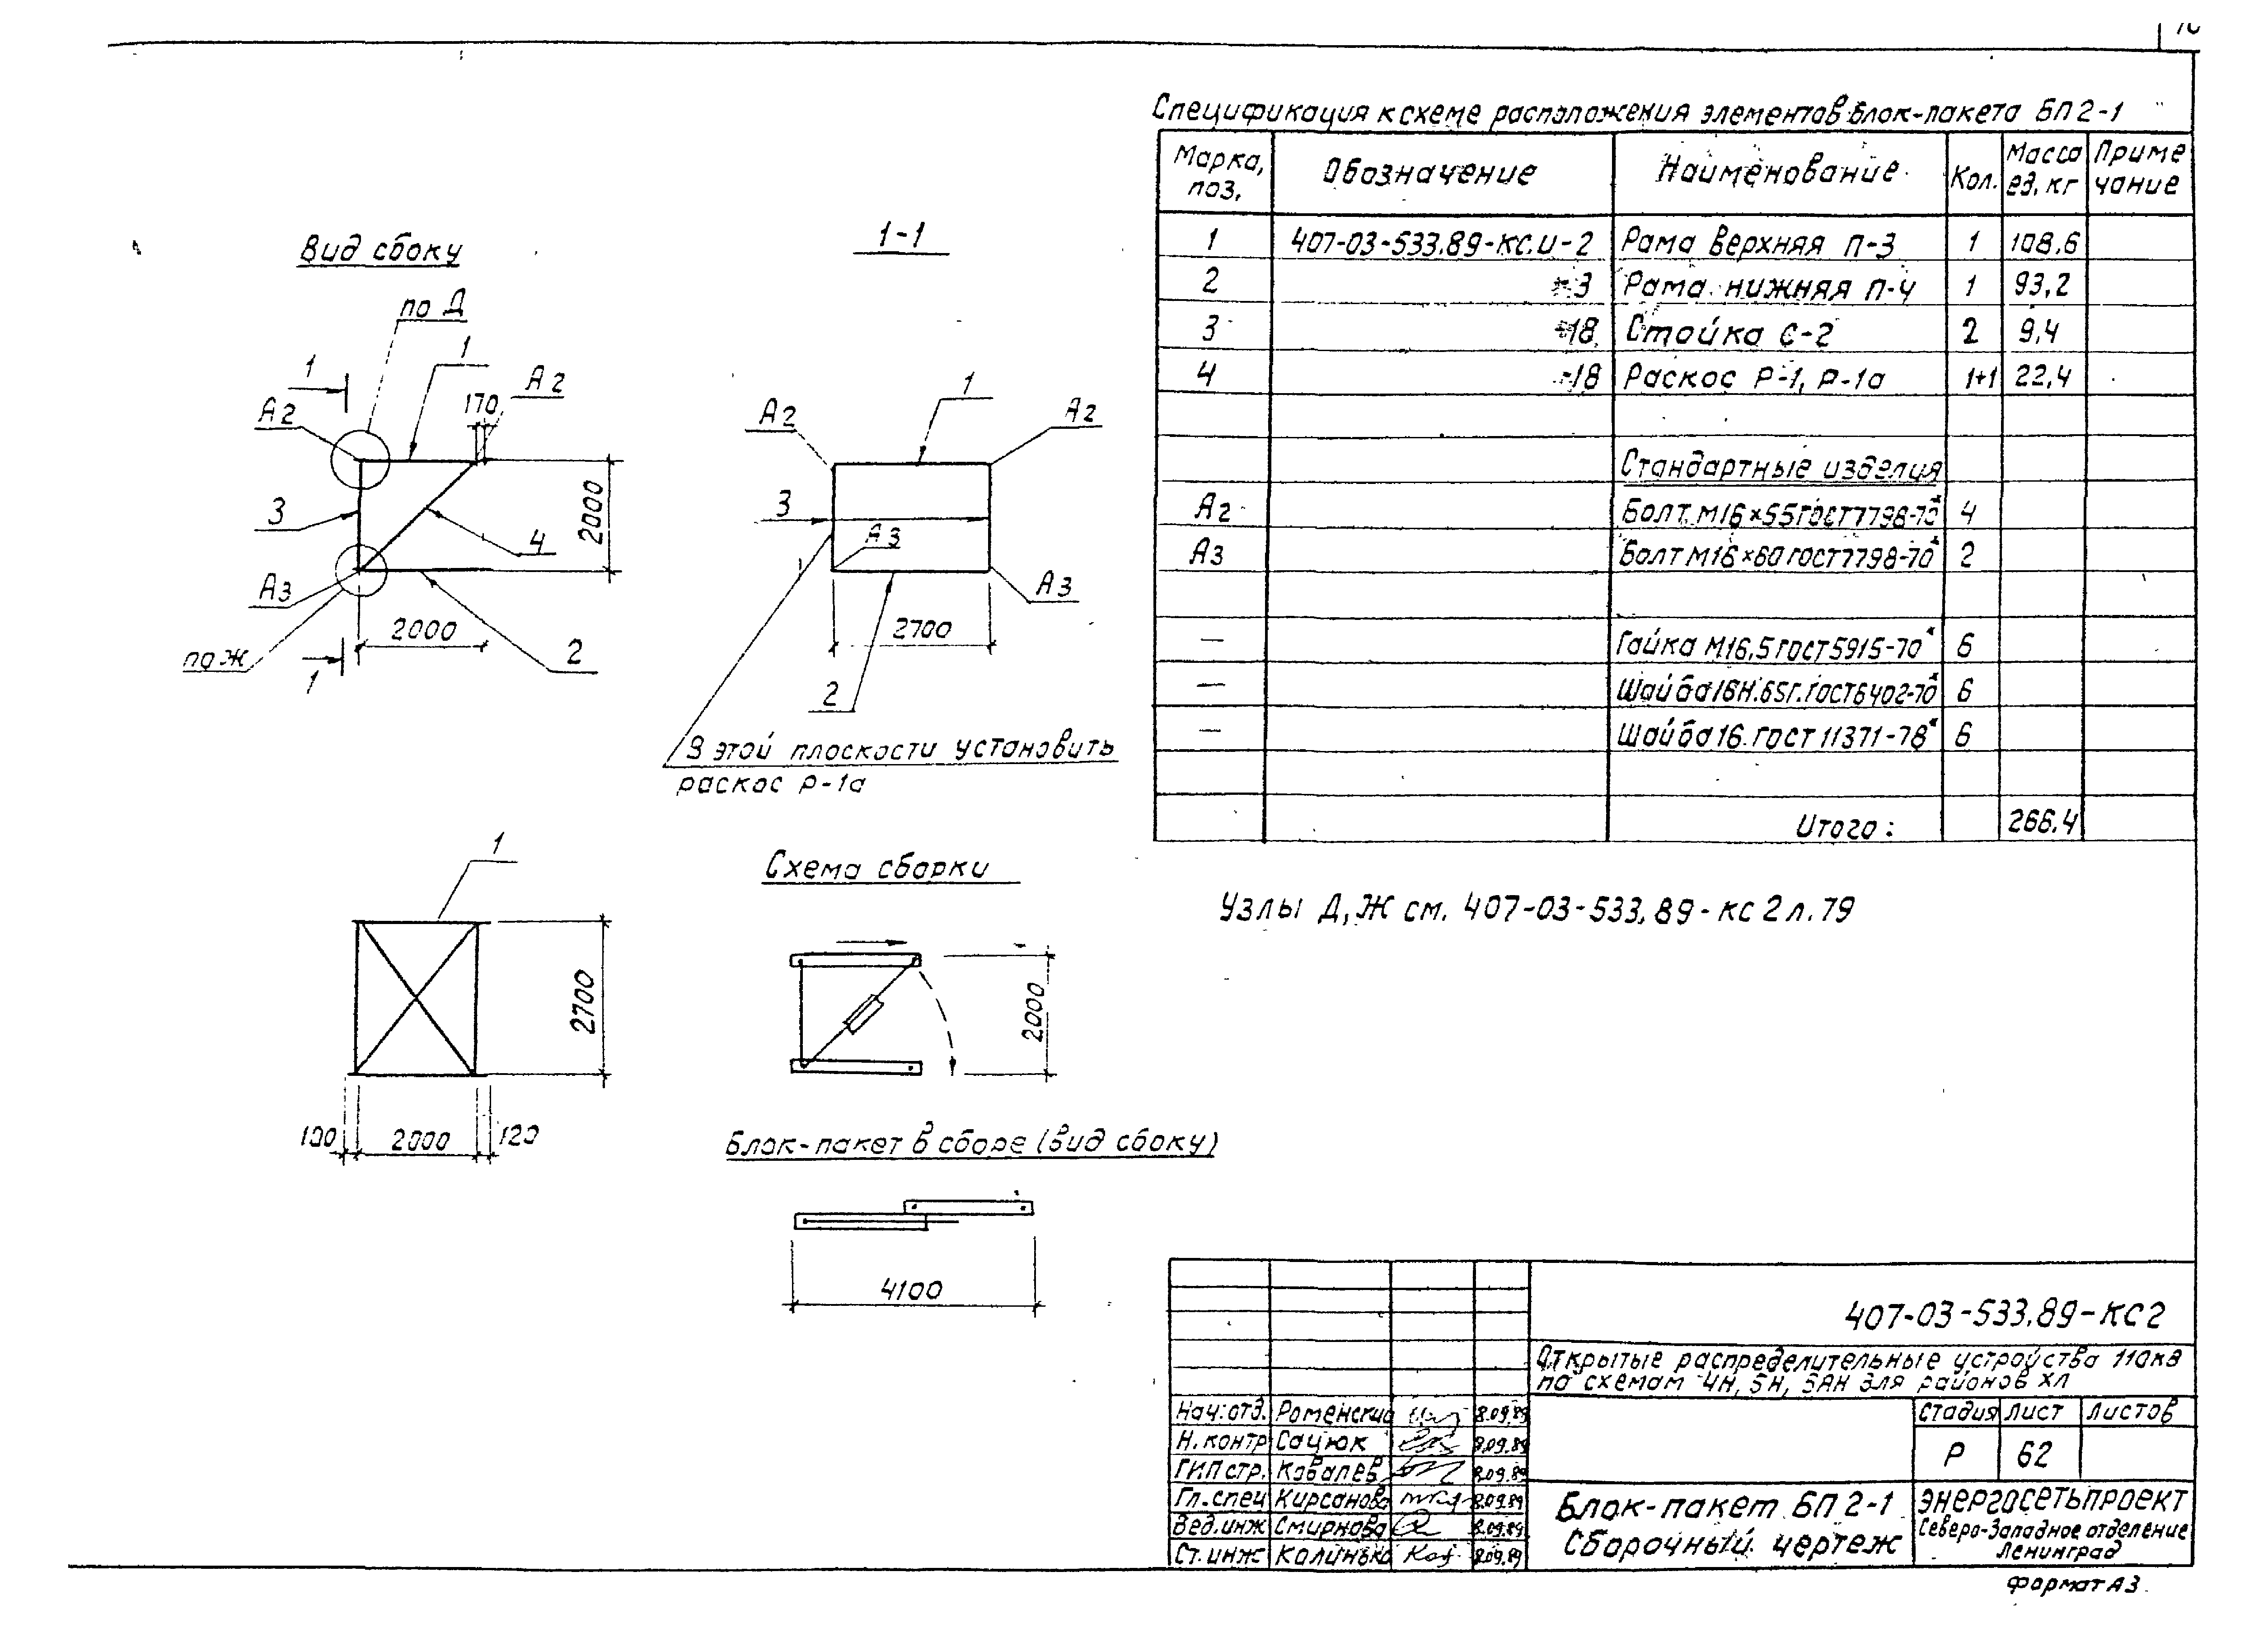 Спецификация к схеме расположения элементов блок-пакета БП2-1
Марка, поз. Обозначение Наименование Кол. Масса ед, кг Примечание
1 407-03-533.89-КС.И-2 Рама верхняя П-3 1 108.6
2 -3 Рама нижняя П-4 1 93,2
3 -18 Стойка С-2 2 9,4
4 -18 Раскос Р-1, Р-1а 1+1 22,4
Стандартные изделия
А2 Болт М16×55 ГОСТ 7798-70* 4
А3 Болт М16×60 ГОСТ 7798-70* 2
— Гайка М16,5 ГОСТ 5915-70* 6
— Шайба 16Н.65Г. ГОСТ 6402-70* 6
— Шайба 16. ГОСТ 11371-78* 6
Итого: 266.4
Узлы Д, Ж см. 407-03-533.89-КС2 л.79
Вид сбоку
по Д
1
1
А2
А2
170
3
4
2000
А3
2000
2
по Ж
1
1-1
1
А2
А2
3
А3
А3
2700
2
В этой плоскости установить
раскос Р-1а
1
2700
100 2000 120
Схема сборки
2000
Блок-пакет в сборе (вид сбоку)
4100
407-03-533.89-КС2
Открытые распределительные устройства 110кВ
по схемам 4Н, 5Н, 5АН для районов ХЛ
Нач.отд. Роменский 8.09.89
Н.контр Сацюк 8.09.89
ГИП стр. Ковалев 8.09.89
Гл.спец Кирсанова 8.09.89
Вед.инж Смирнова 8.09.89
Ст.инж Калинько 8.09.89
Стадия Лист Листов
Р 62
Блок-пакет БП2-1
Сборочный чертеж
ЭНЕРГОСЕТЬПРОЕКТ
Северо-Западное отделение
Ленинград
Формат А3